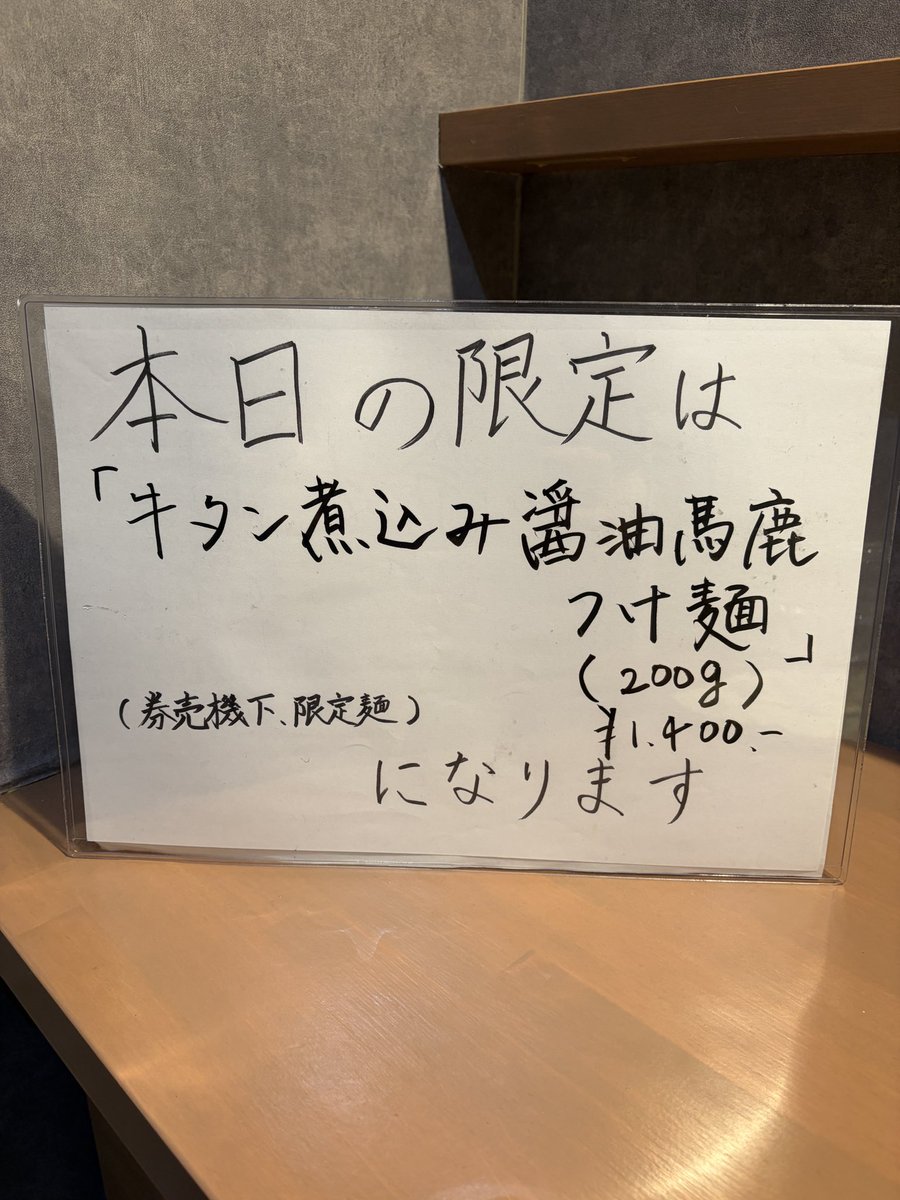 本日の限定は
「牛タン煮込み醤油馬鹿
つけ麺」
(200g)
(券売機下、限定麺)
¥1.400.-
になります